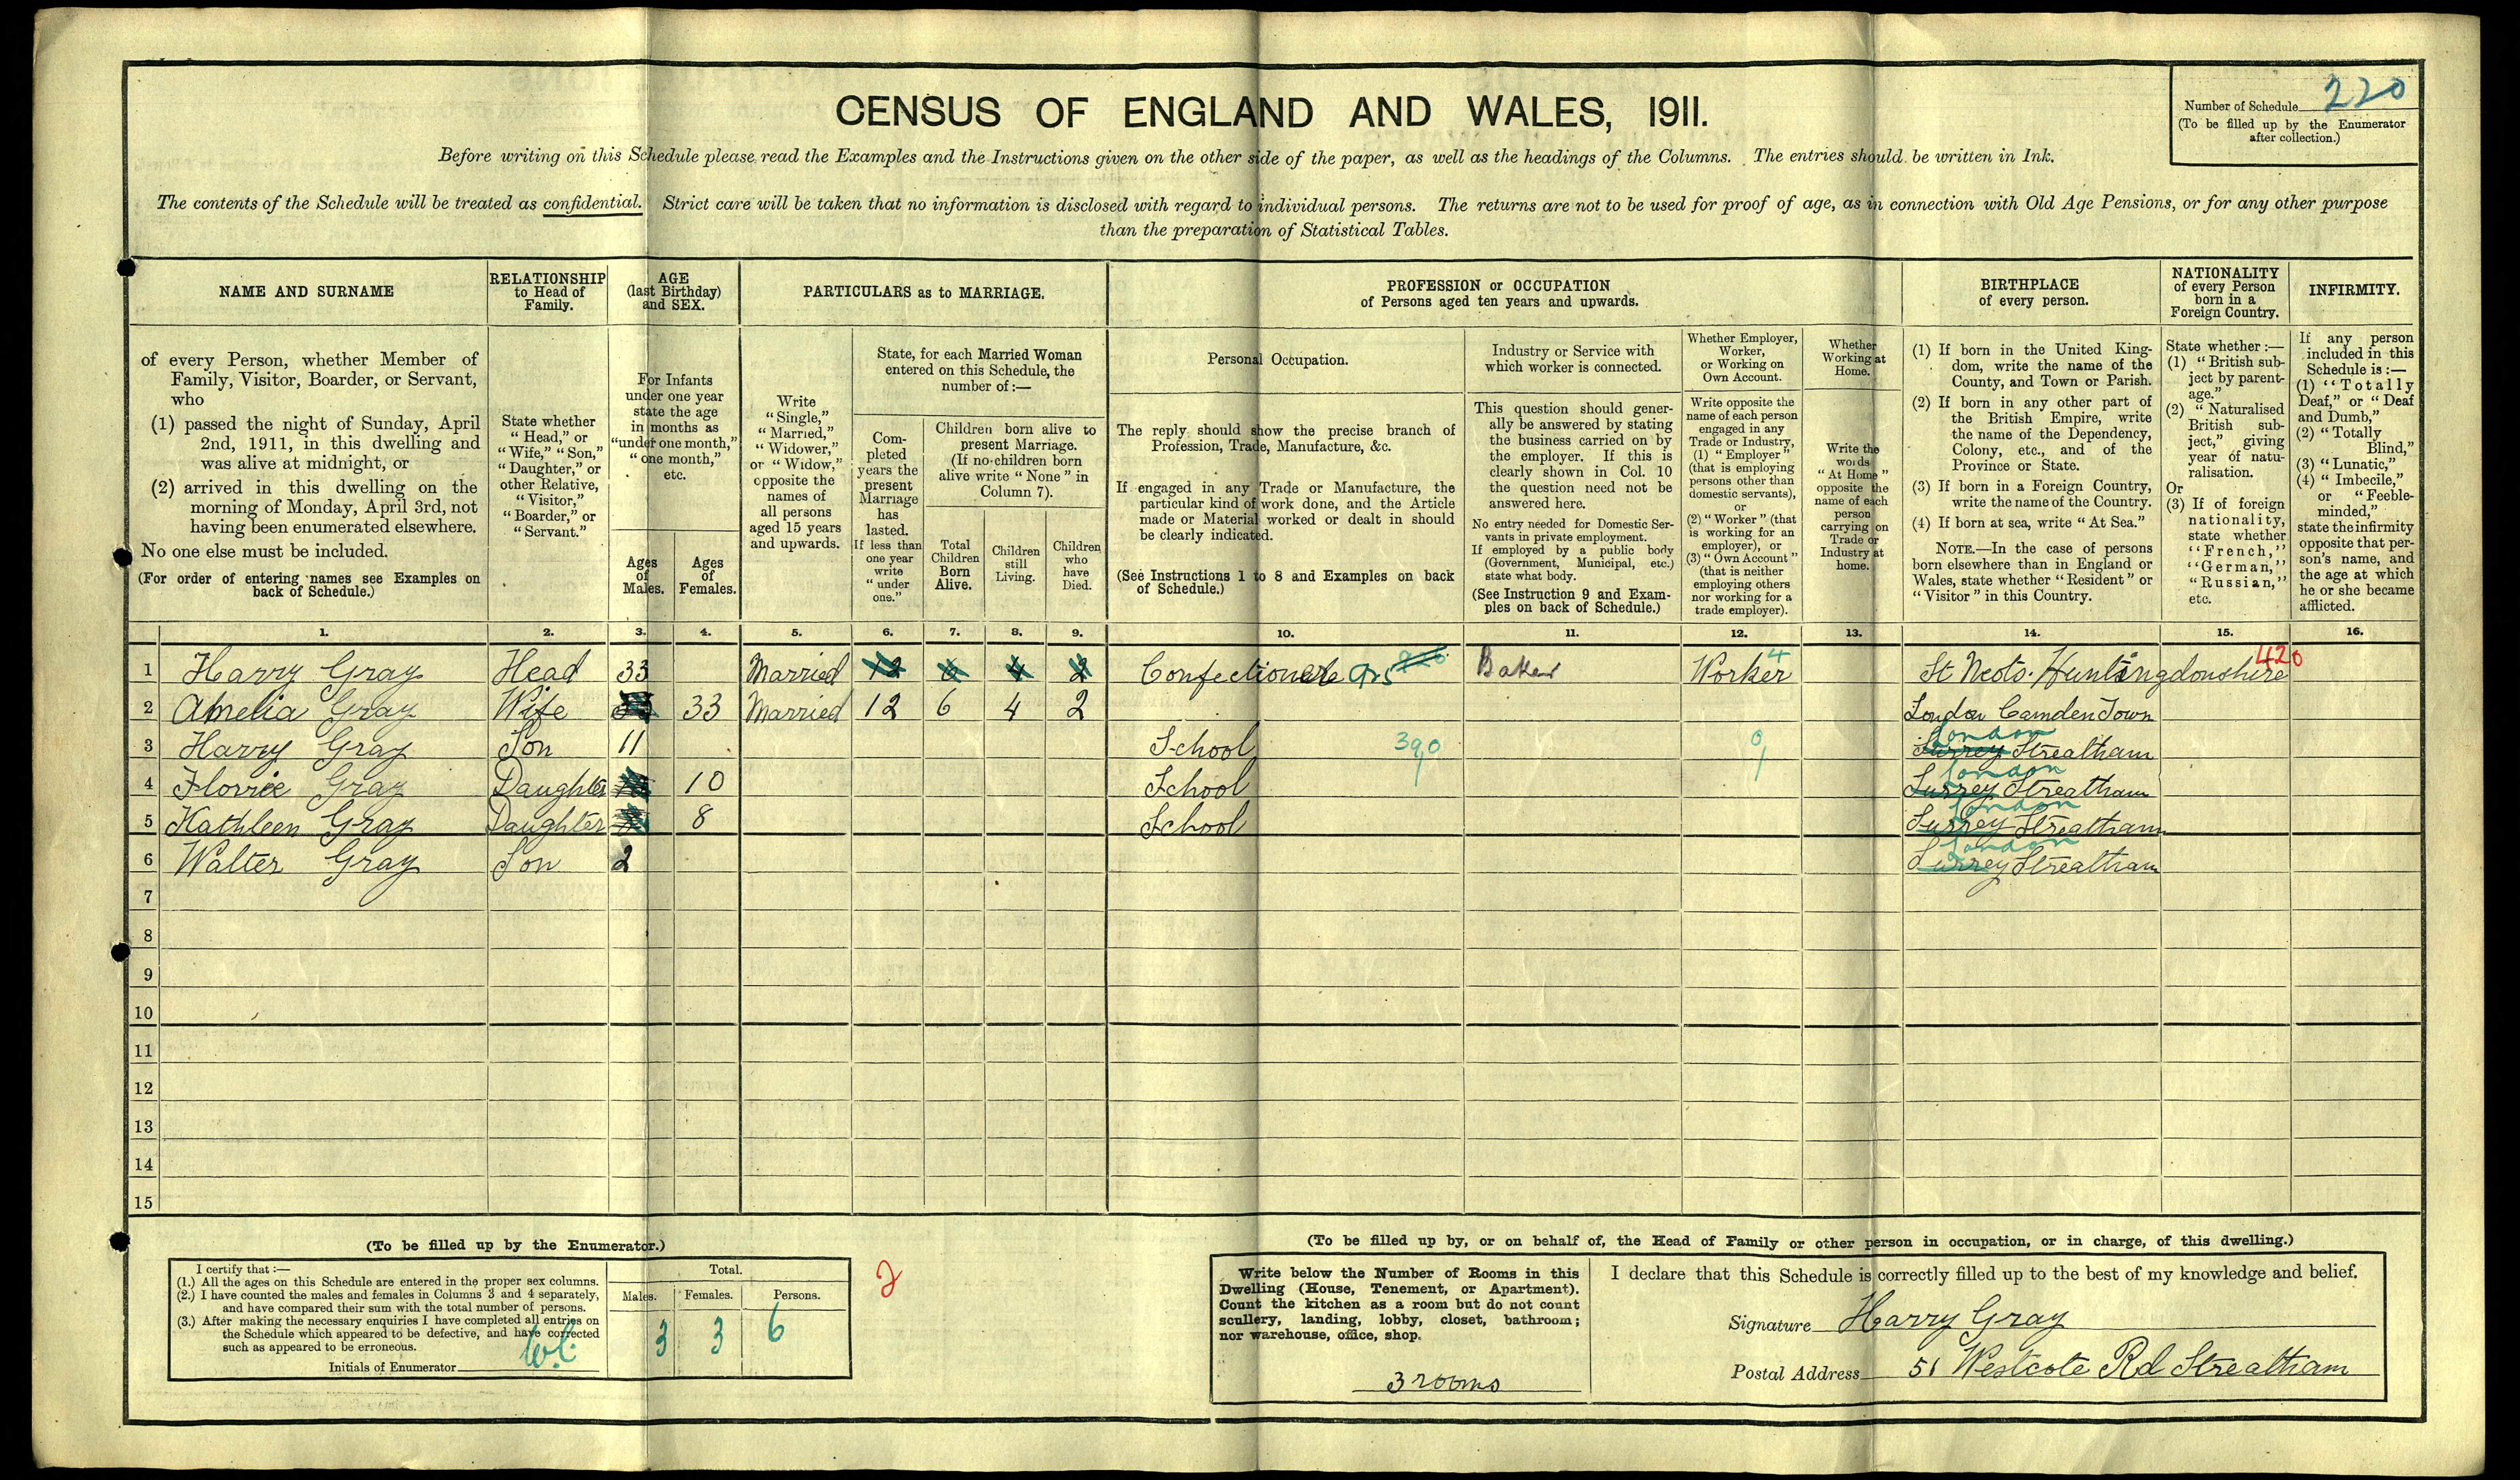 CENSUS OF ENGLAND AND WALES, 1911.
Number of Schedule 220
(To be filled up by the Enumerator
after collection.)
Before writing on this Schedule please read the Examples and the Instructions given on the other side of the paper, as well as the headings of the Columns. The entries should be written in Ink.
The contents of the Schedule will be treated as confidential. Strict care will be taken that no information is disclosed with regard to individual persons. The returns are not to be used for proof of age, as in connection with Old Age Pensions, or for any other purpose
than the preparation of Statistical Tables.
NAME AND SURNAME
RELATIONSHIP
to Head of
Family.
AGE
(last Birthday)
and SEX.
PARTICULARS as to MARRIAGE.
PROFESSION or OCCUPATION
of Persons aged ten years and upwards.
BIRTHPLACE
of every person.
NATIONALITY
of every Person
born in a
Foreign Country.
INFIRMITY.
of every Person, whether Member of
Family, Visitor, Boarder, or Servant,
who
(1) passed the night of Sunday, April
2nd, 1911, in this dwelling and
was alive at midnight, or
(2) arrived in this dwelling on the
morning of Monday, April 3rd, not
having been enumerated elsewhere.
No one else must be included.
(For order of entering names see Examples on
back of Schedule.)
State whether
"Head," or
"Wife," "Son,"
"Daughter," or
other Relative,
"Visitor,"
"Boarder," or
"Servant."
For Infants
under one year
state the age
in months as
"under one month,"
"one month,"
etc.
Ages
of
Males.
Ages
of
Females.
Write
"Single,"
"Married,"
"Widower,"
or "Widow,"
opposite the
names of
all persons
aged 15 years
and upwards.
State, for each Married Woman
entered on this Schedule, the
number of:—
Com-
pleted
years the
present
Marriage
has
lasted.
If less than
one year
write
"under
one."
Children born alive to
present Marriage.
(If no children born
alive write "None" in
Column 7).
Total
Children
Born
Alive.
Children
still
Living.
Children
who
have
Died.
Personal Occupation.
The reply should show the precise branch of
Profession, Trade, Manufacture, &c.
If engaged in any Trade or Manufacture, the
particular kind of work done, and the Article
made or Material worked or dealt in should
be clearly indicated.
(See Instructions 1 to 8 and Examples on back
of Schedule.)
Industry or Service with
which worker is connected.
This question should gener-
ally be answered by stating
the business carried on by
the employer. If this is
clearly shown in Col. 10
the question need not be
answered here.
No entry needed for Domestic Ser-
vants in private employment.
If employed by a public body
(Government, Municipal, etc.)
state what body.
(See Instruction 9 and Exam-
ples on back of Schedule.)
Whether Employer,
Worker,
or Working on
Own Account.
Write opposite the
name of each person
engaged in any
Trade or Industry,
(1) "Employer"
(that is employing
persons other than
domestic servants),
or
(2) "Worker" (that
is working for an
employer), or
(3) "Own Account"
(that is neither
employing others
nor working for a
trade employer).
Whether
Working at
Home.
Write the
words
"At Home"
opposite the
name of each
person
carrying on
Trade or
Industry at
home.
(1) If born in the United King-
dom, write the name of the
County, and Town or Parish.
(2) If born in any other part of
the British Empire, write
the name of the Dependency,
Colony, etc., and of the
Province or State.
(3) If born in a Foreign Country,
write the name of the Country.
(4) If born at sea, write "At Sea."
NOTE.—In the case of persons
born elsewhere than in England or
Wales, state whether "Resident" or
"Visitor" in this Country.
State whether:—
(1) "British sub-
ject by parent-
age."
(2) "Naturalised
British sub-
ject," giving
year of natu-
ralisation.
Or
(3) If of foreign
nationality,
state whether
"French,"
"German,"
"Russian,"
etc.
If any person
included in this
Schedule is:—
(1) "Totally
Deaf," or "Deaf
and Dumb,"
(2) "Totally
Blind,"
(3) "Lunatic,"
(4) "Imbecile,"
or "Feeble-
minded,"
state the infirmity
opposite that per-
son's name, and
the age at which
he or she became
afflicted.
1. 2. 3. 4. 5. 6. 7. 8. 9. 10. 11. 12. 13. 14. 15. 16.
1 Harry Gray Head 33 Married 12 6 4 2 Confectioner Baker Worker 4 St Neots. Huntingdonshire 420
2 Amelia Gray Wife 33 Married 12 6 4 2 London Camden Town
3 Harry Gray Son 11 School 390 0 Surrey London Streatham
4 Florrie Gray Daughter 10 School Surrey London Streatham
5 Kathleen Gray Daughter 8 School Surrey London Streatham
6 Walter Gray Son 2 Surrey London Streatham
7
8
9
10
11
12
13
14
15
(To be filled up by the Enumerator.)
I certify that:—
(1.) All the ages on this Schedule are entered in the proper sex columns.
(2.) I have counted the males and females in Columns 3 and 4 separately,
and have compared their sum with the total number of persons.
(3.) After making the necessary enquiries I have completed all entries on
the Schedule which appeared to be defective, and have corrected
such as appeared to be erroneous.
Initials of Enumerator
Total.
Males. Females. Persons.
3 3 6
2
(To be filled up by, or on behalf of, the Head of Family or other person in occupation, or in charge, of this dwelling.)
Write below the Number of Rooms in this
Dwelling (House, Tenement, or Apartment).
Count the kitchen as a room but do not count
scullery, landing, lobby, closet, bathroom;
nor warehouse, office, shop.
3 rooms
I declare that this Schedule is correctly filled up to the best of my knowledge and belief.
Signature Harry Gray
Postal Address 51 Westcote Rd Streatham